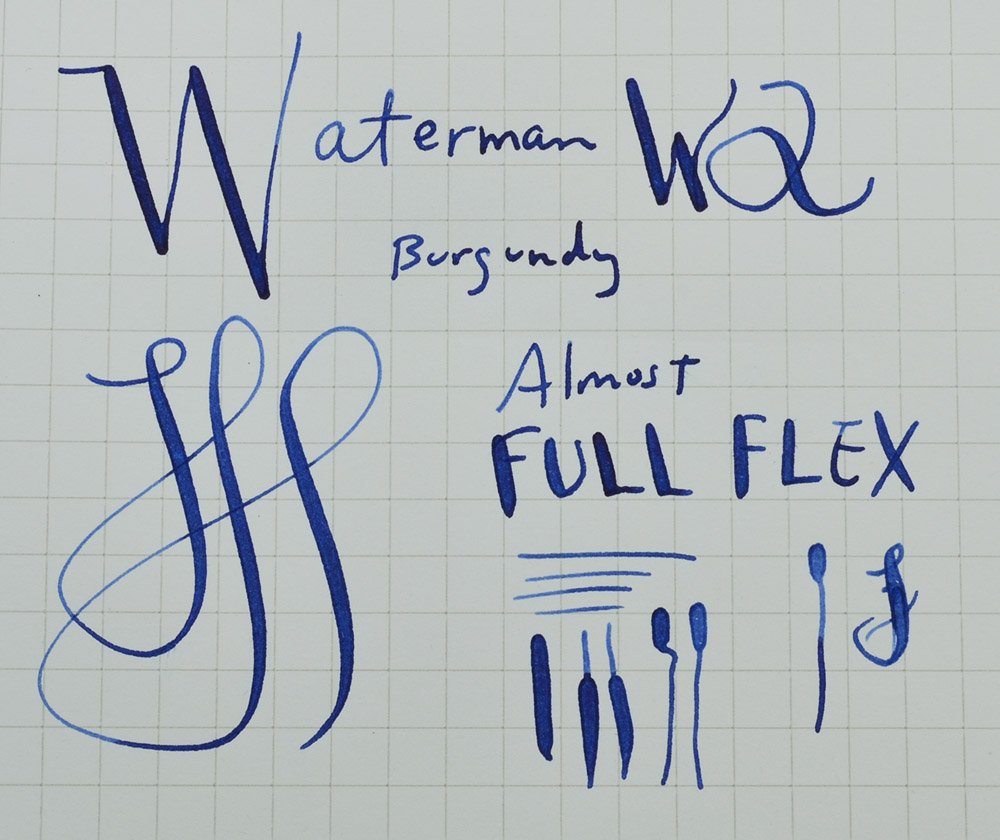 Waterman W2
Burgundy
Almost
FULL FLEX